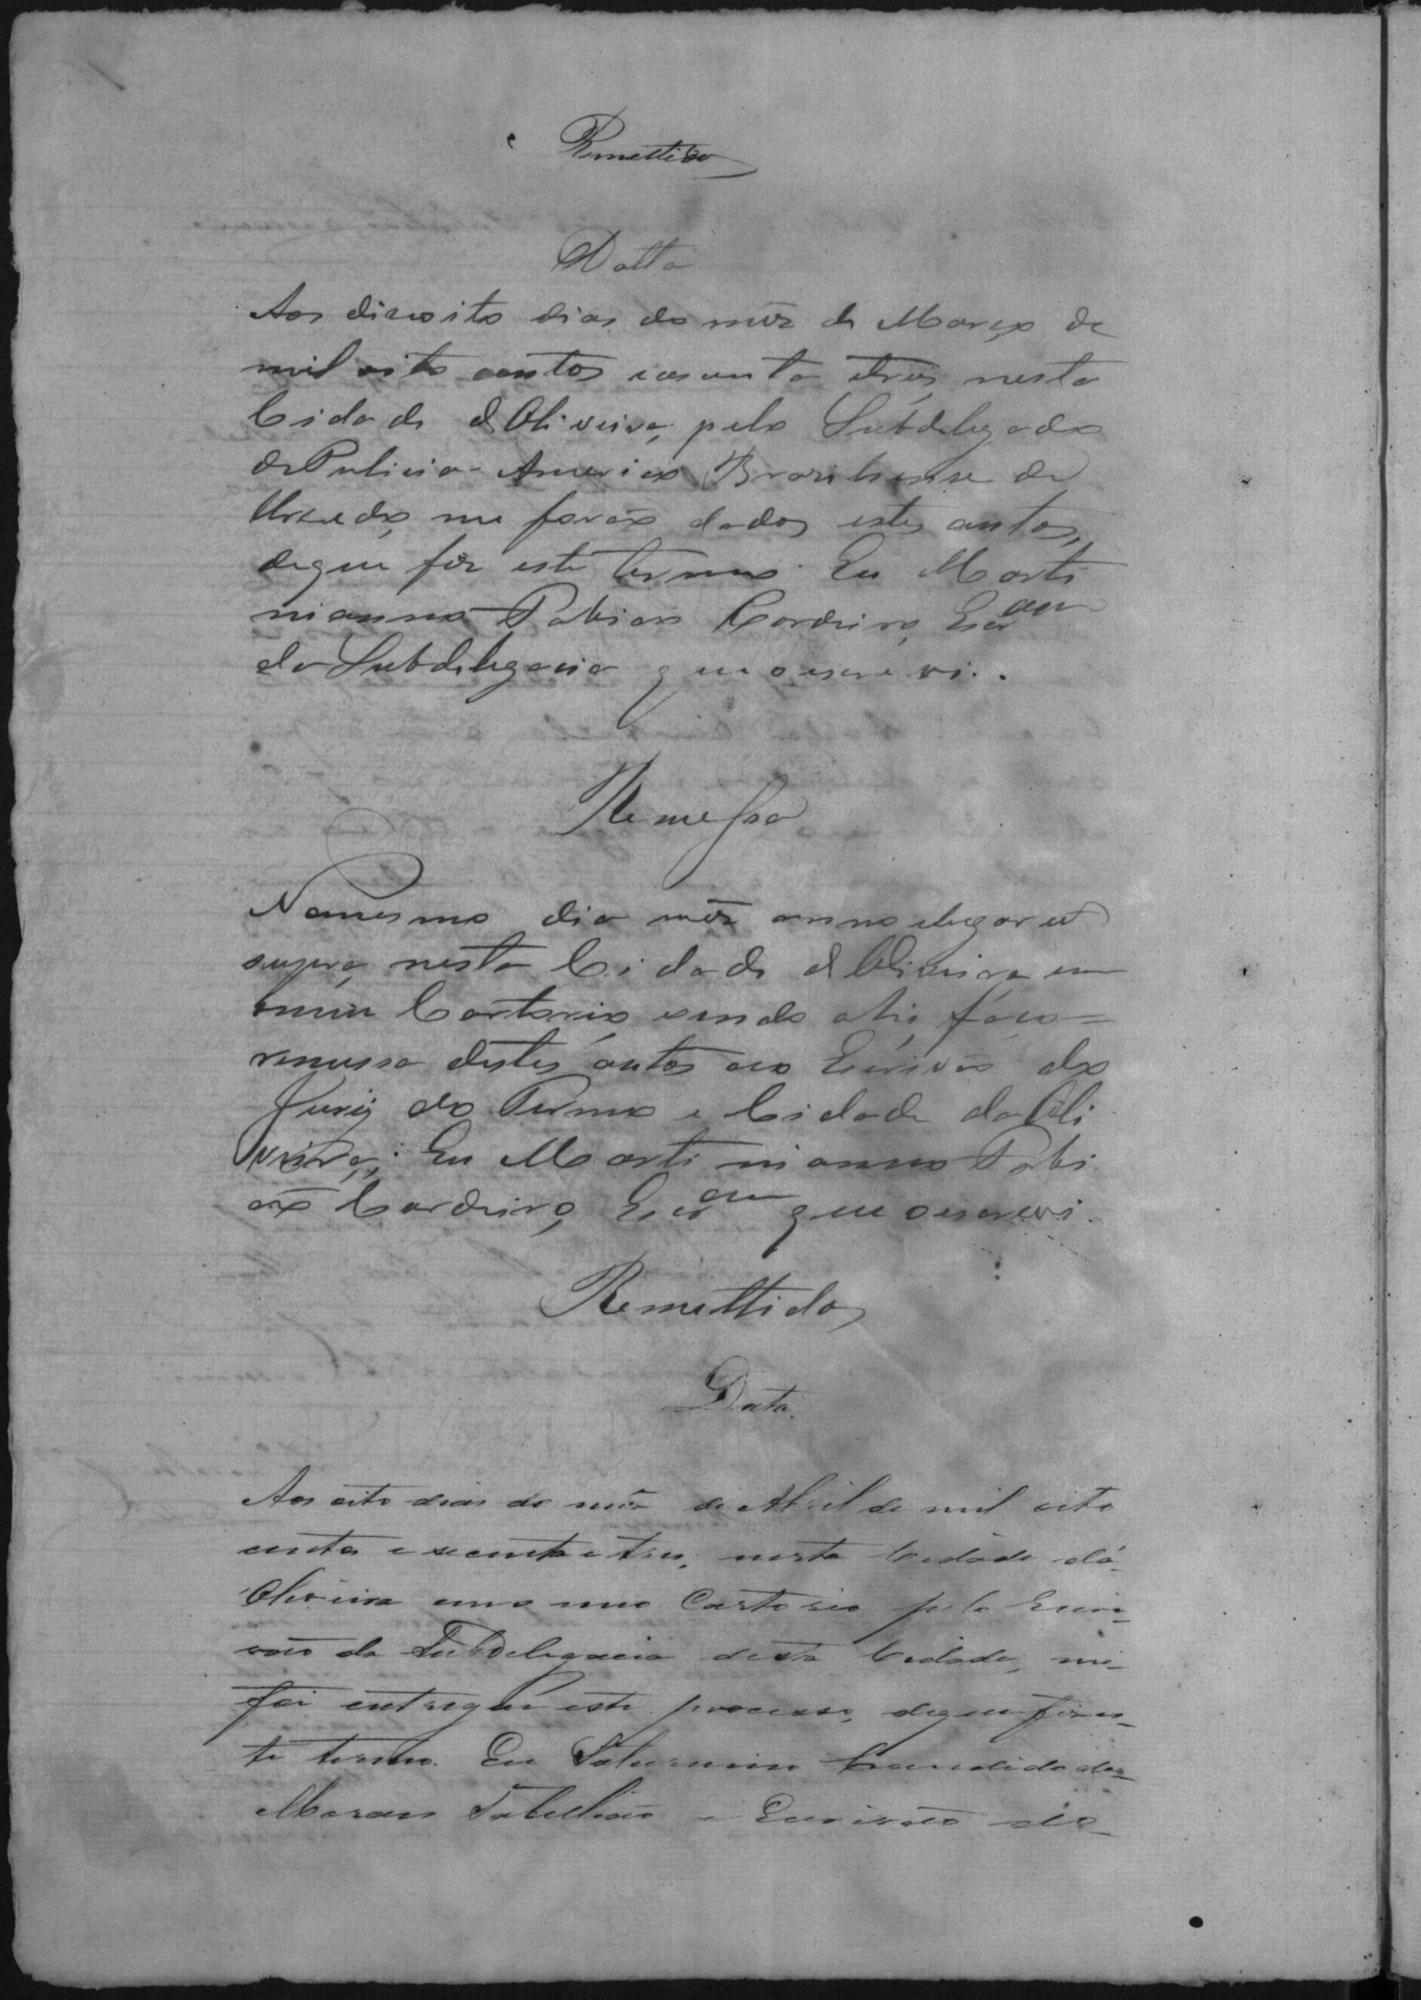 Remettido
Datta
Aos dizeoito dias do mêz de Março de
mil oito centos secenta etrêis, nesta
Cidade d'Oliveira, pelo Subdelegado
de Pulicia Americo Braziliense de
me forão dados estes autos,
deque fiz este termo. Eu Marti
nianno Cordeiro, Escr.am
da Subdelegacia que o escrevi.
Remessa
No mesmo dia mêz anno elugar ut
supra, nesta Cidade d'Oliveira em
meu Cartorio, sendo ahi, faco
remessa destes autos ao Escrivão do
Jury do Termo e Cidade da Oli
veira; Eu Martinianno
Cordeiro, Escr.am que o escrevi.
Remettidos
Data.
Aos oito dias do mês de Abril de mil oito
centos e secenta e tres, nesta Cidade dá
Oliveira em o meo Cartorio pelo Escri-
vão da Subdelegacia desta Cidade, me
foi entregue este processo, deque fiz es-
te termo. Eu Saturnino Candido de
Moraes Tabellião e Escrivão do